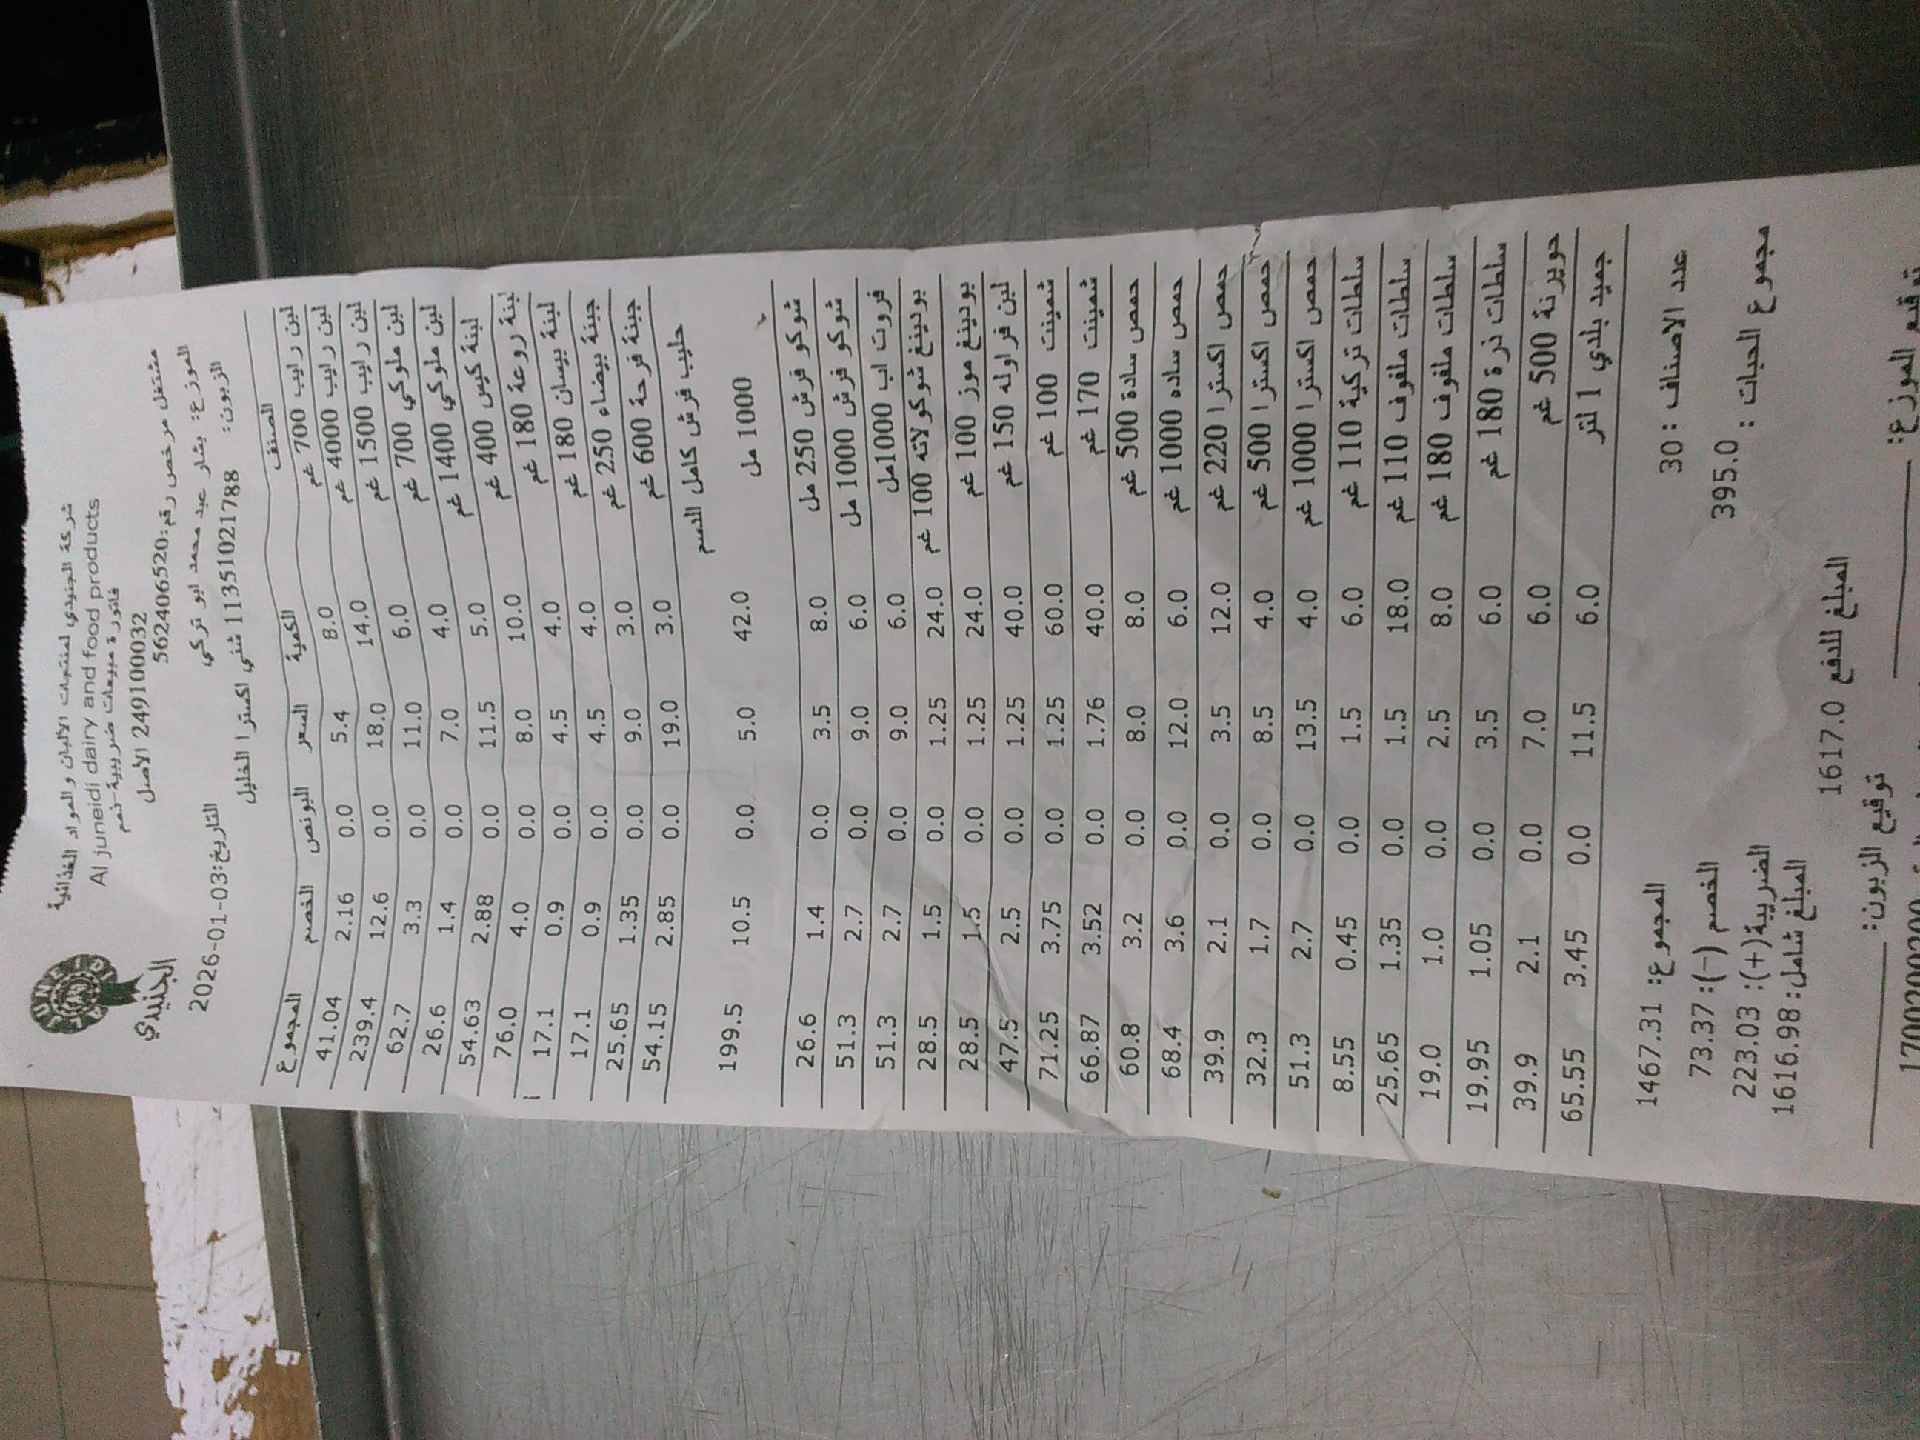 شركة الجنيدي لمنتجات الالبان والمواد الغذائية
Al juneidi dairy and food products
فاتورة مبيعات ضريبية-نعم
249100032 الاصل
JUNEIDI
الجنيدي
مشتغل مرخص رقم:562406520
الموزع: بشار عبد محمد ابو تركي
التاريخ:2026-01-03
الزبون: 11351021788 شني اكسترا الخليل
الصنف الكمية السعر البونص الخصم المجموع
لبن رايب 700 غم 8.0 5.4 0.0 2.16 41.04
لبن رايب 4000 غم 14.0 18.0 0.0 12.6 239.4
لبن رايب 1500 غم 6.0 11.0 0.0 3.3 62.7
لبن ملوكي 700 غم 4.0 7.0 0.0 1.4 26.6
لبن ملوكي 1400 غم 5.0 11.5 0.0 2.88 54.63
لبنة كيس 400 غم 10.0 8.0 0.0 4.0 76.0
لبنة روعة 180 غم 4.0 4.5 0.0 0.9 17.1
لبنة بيسان 180 غم 4.0 4.5 0.0 0.9 17.1
جبنة بيضاء 250 غم 3.0 9.0 0.0 1.35 25.65
جبنة فرحة 600 غم 3.0 19.0 0.0 2.85 54.15
حليب فرش كامل الدسم
1000 مل 42.0 5.0 0.0 10.5 199.5
شوكو فرش 250 مل 8.0 3.5 0.0 1.4 26.6
شوكو فرش 1000 مل 6.0 9.0 0.0 2.7 51.3
فروت اب 1000مل 6.0 9.0 0.0 2.7 51.3
بودينغ شوكولاته 100 غم 24.0 1.25 0.0 1.5 28.5
بودينغ موز 100 غم 24.0 1.25 0.0 1.5 28.5
لبن فراوله 150 غم 40.0 1.25 0.0 2.5 47.5
شمينت 100 غم 60.0 1.25 0.0 3.75 71.25
شمينت 170 غم 40.0 1.76 0.0 3.52 66.87
حمص سادة 500 غم 8.0 8.0 0.0 3.2 60.8
حمص ساده 1000 غم 6.0 12.0 0.0 3.6 68.4
حمص اكسترا 220 غم 12.0 3.5 0.0 2.1 39.9
حمص اكسترا 500 غم 4.0 8.5 0.0 1.7 32.3
حمص اكسترا 1000 غم 4.0 13.5 0.0 2.7 51.3
سلطات تركية 110 غم 6.0 1.5 0.0 0.45 8.55
سلطات ملفوف 110 غم 18.0 1.5 0.0 1.35 25.65
سلطات ملفوف 180 غم 8.0 2.5 0.0 1.0 19.0
سلطات ذرة 180 غم 6.0 3.5 0.0 1.05 19.95
500 غم 6.0 7.0 0.0 2.1 39.9
جميد بلدي 1 لتر 6.0 11.5 0.0 3.45 65.55
عدد الاصناف : 30 المجموع: 1467.31
مجموع الحبات : 395.0 الخصم (-): 73.37
الضريبة(+): 223.03
المبلغ للدفع 1617.0 المبلغ شامل: 1616.98
توقيع الموزع: توقيع الزبون: